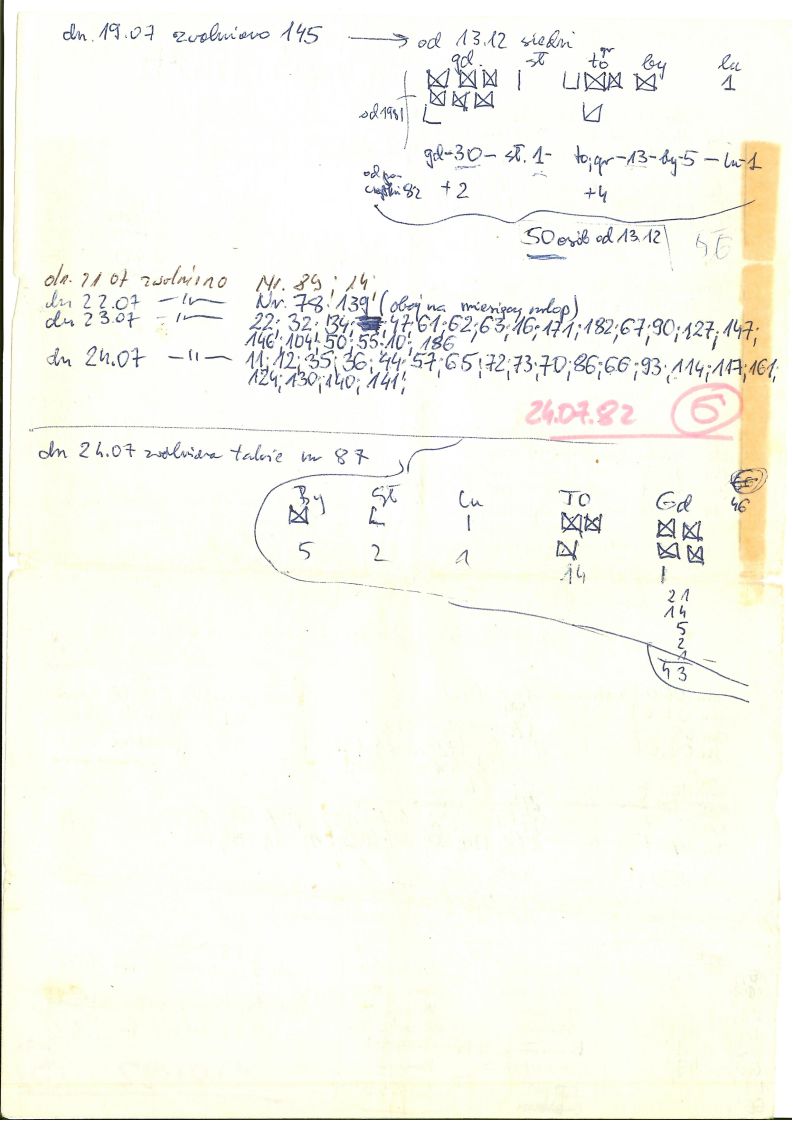 dn. 19.07 zwolniono 145 → od 13.12 siedzi
gd. st to gr by lu
1
od 1981
gd-30- st. 1- to,gr-13-by-5-lu-1
od po-
czątku 82 +2 +4
50 osób od 13.12
dn. 21.07 zwolniono Nr. 89; 14
dn 22.07 —"— Nr. 78; 139 (oboje na miesięczny urlop)
dn 23.07 —"— 22; 32; 34; 47; 61; 62; 63; 16; 171; 182; 67; 90; 127; 147;
146; 104; 50; 55; 10; 186
dn 24.07 —"— 11; 12; 35; 36; 44; 57; 65; 72; 73; 70; 86; 66; 93; 114; 117; 161;
124; 130; 140; 141;
24.07.82 6
dn 24.07 zwolniona także nr 87
By St Lu TO Gd 46
5 2 1 14
21
14
5
2
1
43